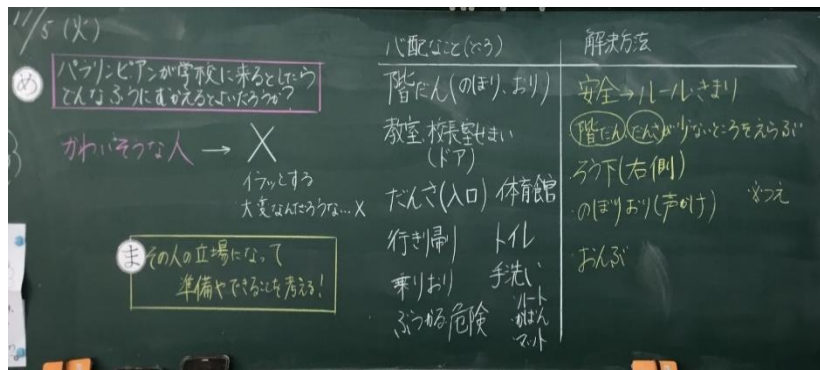 11/5(火)
め
パラリンピアンが学校に来るとしたら
どんなふうにむかえるとよいだろうか?
かわいそうな人 → X
イラッとする
大変なんだろうな…X
ま
その人の立場になって
準備やできることを考える!
心配なこと(ところ)
階だん(のぼり、おり)
教室、校長室せまい
(ドア)
だんさ(入口) 体育館
行き帰り トイレ
乗りおり 手洗い
ぶつかる危険
ノート
かばん
マット
解決方法
安全→ルール・きまり
階だん だんさが少ないところをえらぶ
ろう下(右側)
のぼりおり(声かけ)
おんぶ